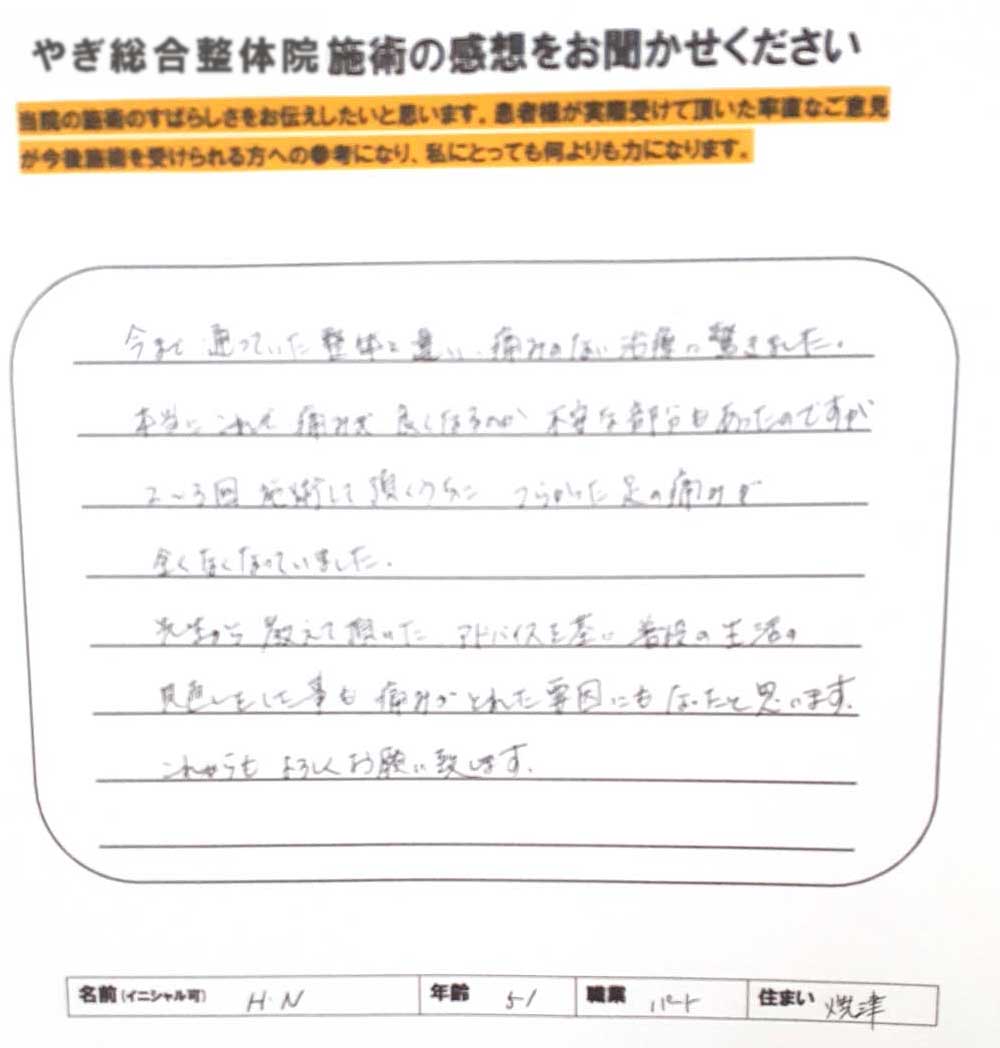 やぎ総合整体院 施術の感想をお聞かせください
当院の施術のすばらしさをお伝えしたいと思います。患者様が実際受けて頂いた率直なご意見
が今後施術を受けられる方への参考になり、私にとっても何よりも力になります。
今まで通っていた整体と違い、痛みのない治療に驚きました。
本当にこれで痛みが良くなるのか不安な部分もあったのですが
2〜3回施術して頂くうちに つらかった足の痛みが
全くなくなっていました。
先生から教えて頂いた アドバイスを基に 普段の生活の
見直しをした事も 痛みがとれた要因にもなったと思います。
これからも よろしくお願い致します。
名前(イニシャル可) H.N 年齢 51 職業 パート 住まい 焼津